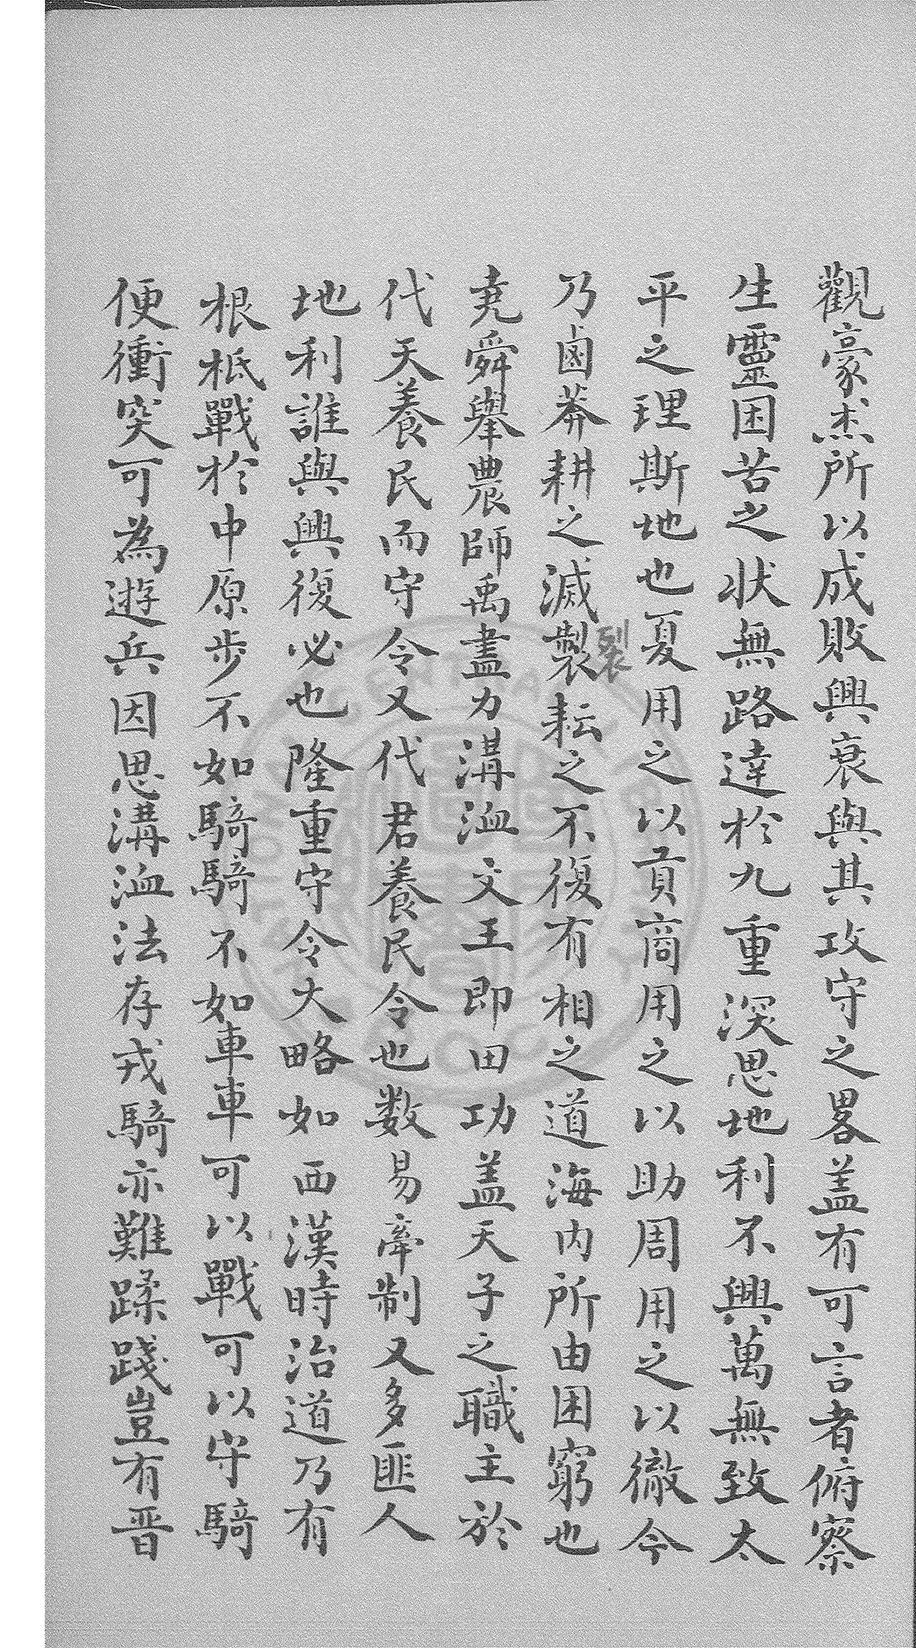 觀豪杰所以成敗興衰與其攻守之畧盖有可言者俯察
生靈困苦之状無路達於九重深思地利不興萬無致太
平之理斯地也夏用之以貢商用之以助周用之以徹今
乃鹵莽耕之滅製耘之不復有相之道海内所由困窮也
裂
堯舜舉農師禹盡力溝洫文王即田功盖天子之職主於
代天養民而守令又代君養民令也数易牽制又多匪人
地利誰與興復必也隆重守令大略如西漢時治道乃有
根柢戰於中原步不如騎騎不如車車可以戰可以守騎
便衝突可為遊兵因思溝洫法存戎騎亦難蹂踐豈有晋
NATIONAL CENTRAL LIBRARY